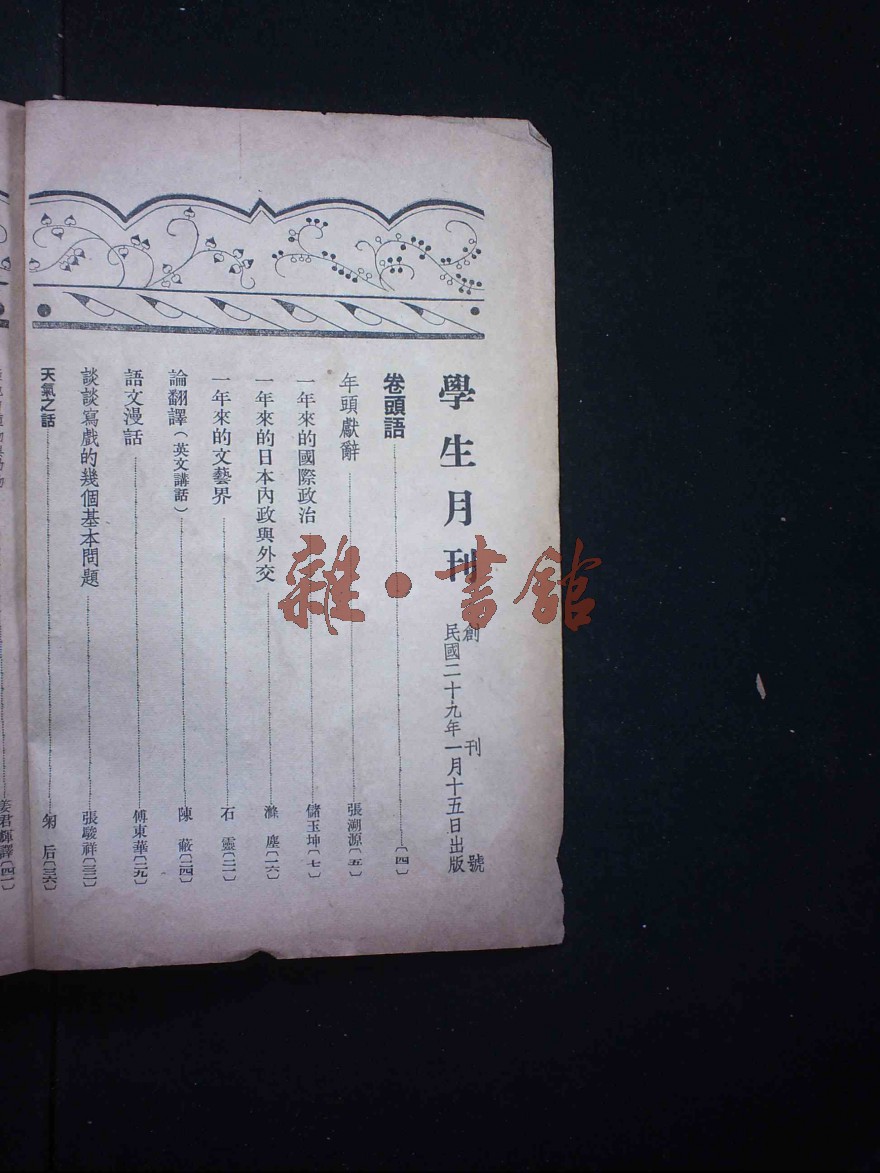 學生月刊
創刊號
民國二十九年一月十五日出版
卷頭語〔四〕
年頭獻辭 張溯源〔五〕
一年來的國際政治 儲玉坤〔七〕
一年來的日本內政與外交 滌塵〔一六〕
一年來的文藝界 石靈〔二一〕
論翻譯（英文講話） 陳蔽〔二四〕
語文漫話 傅東華〔二九〕
談談寫戲的幾個基本問題 張駿祥〔三三〕
天氣之話 匑后〔三六〕
姜君輝譯〔四一〕
雜·書館